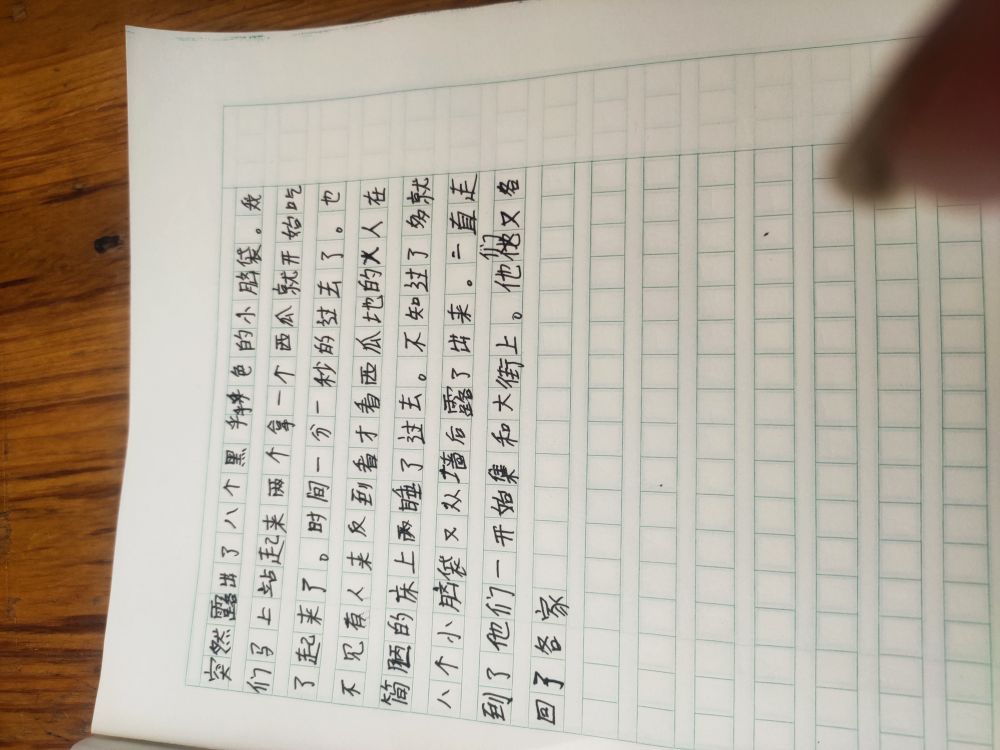 突然露出了八个黑色的小脑袋。我
们马上站起来两个拿一个西瓜就开始吃
了起来了。时间一分一秒的过去了。也
不见有人来反到看才看西瓜地的人在
简陋的床上两睡了过去。不知过了多就
八个小脑袋又从墙后露了出来。一直走
到了他们一开始集和大街上。他们又各
回了各家